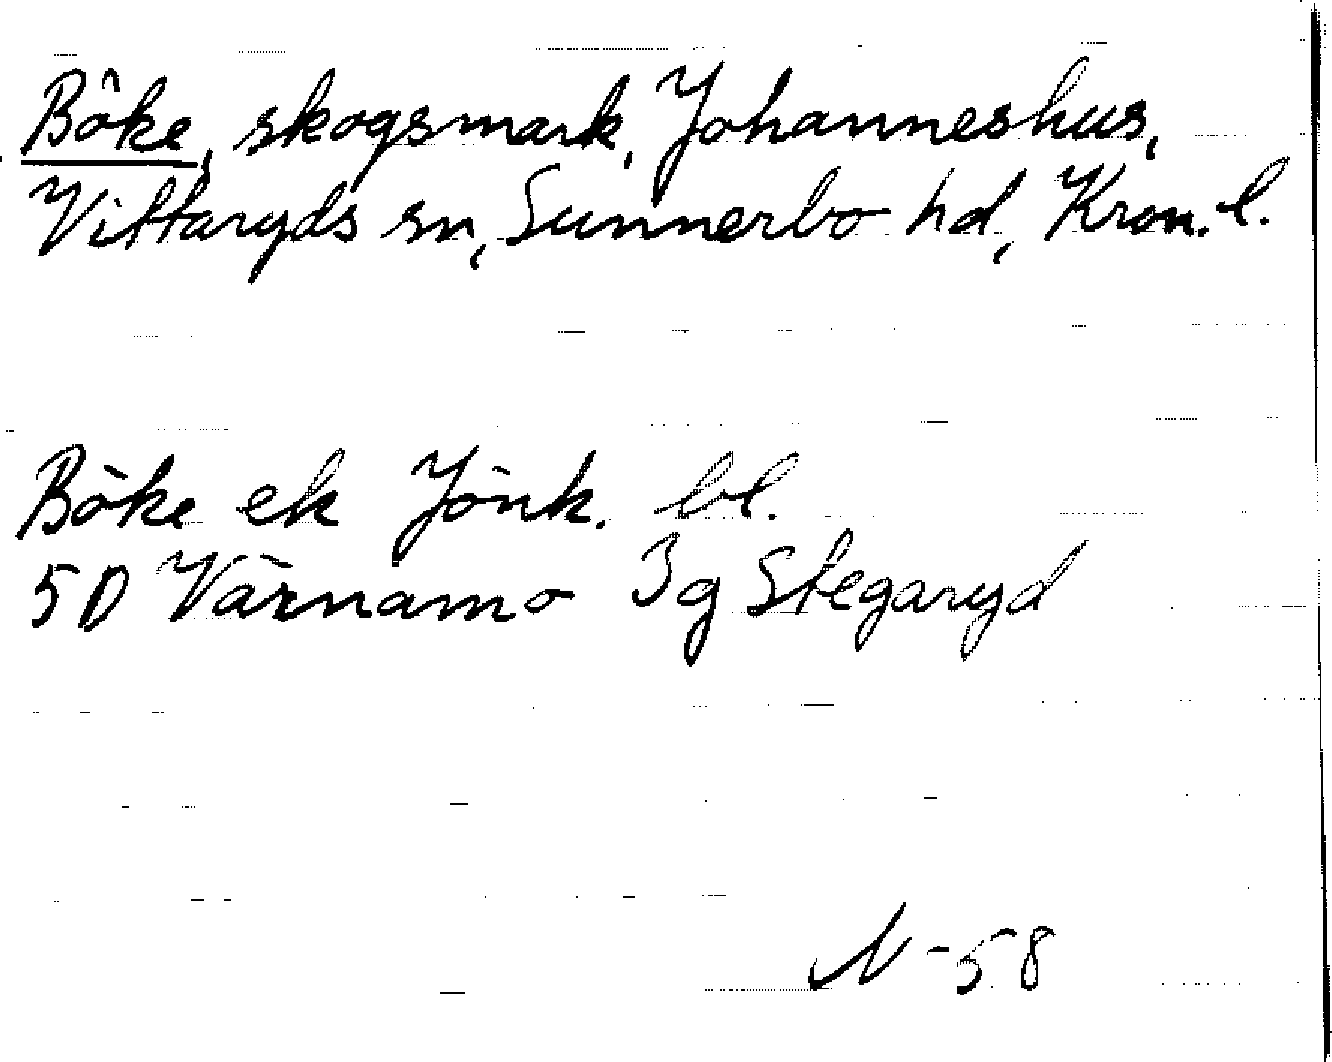 Böke, skogsmark, Johanneshus,
Vittaryds sn, Sunnerbo hd, Kron. l.
Böke ek Jönk. bl.
5D Värnamo 3g Stegaryd
N-58